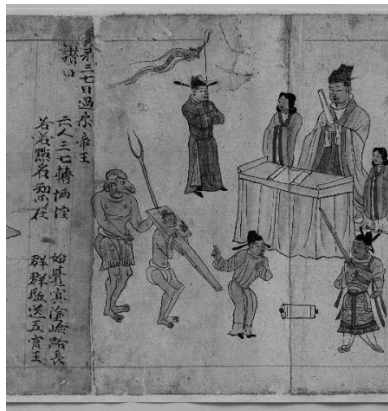 弟三七日過宋帝王
讃曰
亡人三七轉恓惶 始覺冥塗嶮路長
各各點名知所在 群群駈送五官王